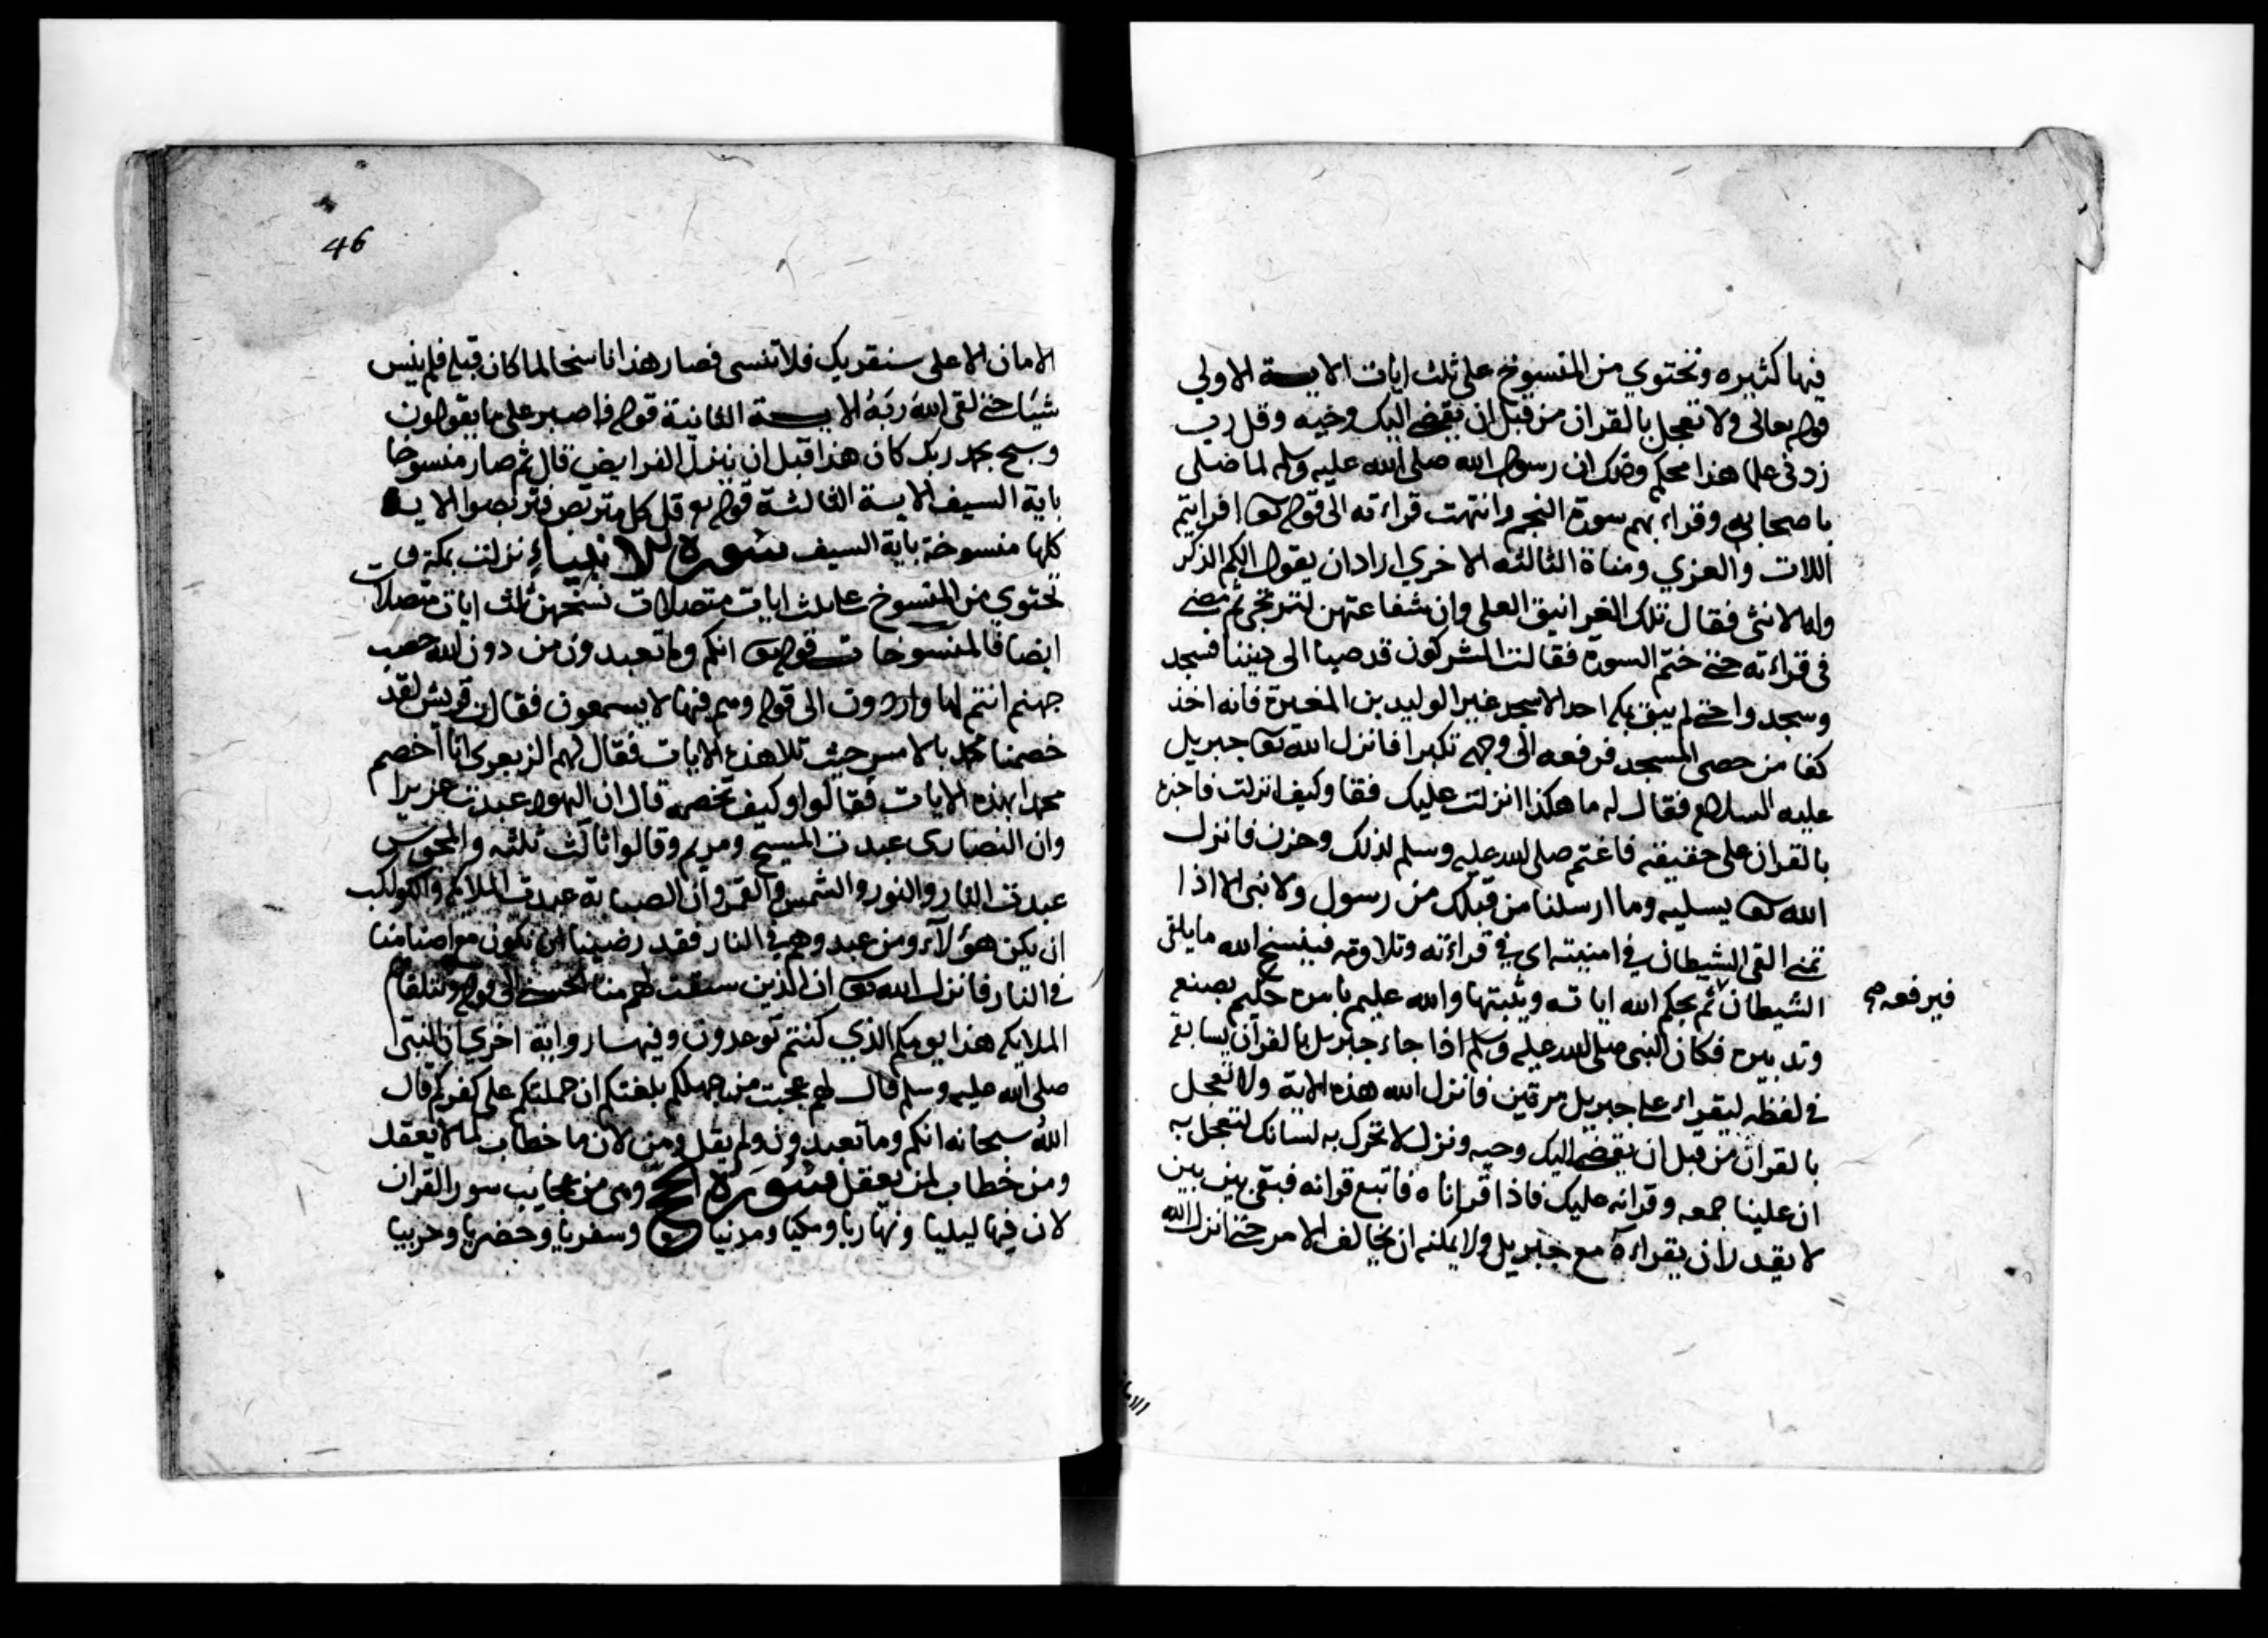 فيها كثيره وتحتوي من المنسوخ على ثلث ايات الايـة الاولي
قوله تعالى ولا تعجل بالقران من قبل ان يقضي اليك وحيه وقل رب
زدني علما هذا محكم وذلك ان رسول الله صلى الله عليه وسلم لما صلى
باصحابه وقراء بهم سورة النجم وانتهت قراءته الى قوله تعا افرايتم
اللات والعزي ومناة الثالثه الاخري اراد ان يقول الكم الذكر
وله الانثى فقال تلك الغرانيق العلى وان شفاعتهن لترتجى ثم مضى
في قراءته حتى ختم السورة فقالت المشركون قد صبا الى ديننا فسجد
وسجدوا حتى لم يبق بمكة احد الا سجد غير الوليد بن المغيرة فانه اخذ
كفا من حصى المسجد فرفعه الى وجهه تكبرا فانزل الله تعا جبريل
عليه السلام فقال له ما هكذا انزلت عليك فقا وكيف انزلت فاخبره
بالقران على حقيقته فاغتم صلى الله عليه وسلم لذلك وحزن فانزل
الله تعا يسليه وما ارسلنا من قبلك من رسول ولا نبي الا اذا
تمنى القى الشيطان في امنيته اي في قراءته وتلاوته فينسخ الله ما يلقى
الشيطان ثم يحكم الله اياتـه ويثبتها والله عليم بامره حكيم بصنعه
فيرفعه
وتدبيره فكان النبي صلى الله عليه وسلم اذا جاء جبريل بالقرآن يسابقه
في لفظه ليقراء على جبريل مرتين فانزل الله هذه الاية ولا تعجل
بالقران من قبل ان يقضى اليك وحيه ونزل لا تحرك به لسانك لتعجل به
ان علينا جمعه وقرانه عليك فاذا قراناه فاتبع قرانه فبقى بين بين
لا يقدر ان يقراءه مع جبريل ولا يمكنه ان يخالف الامر حتى انزل الله
46
الامان الاعلى سنقريك فلا تنسى فصار هذا ناسخا لما كان قبله فلم ينس
شيًا حتى لقى الله ربه الايـة الثانية قوله فاصبر على ما يقولون
وسبح بحمد ربك كان هذا قبل ان ينزل الفرايض قال ثم صار منسوخا
باية السيف الايـة الثالثة قوله تع قل كل متربص فتربصوا الايـة
كلها منسوخة باية السيف سورة الانبياء نزلت بمكة و
تحتوي من المنسوخ على ثلث ايات متصلات نسختهن ثلث ايات متصلات
ايضا فالمنسوخات قوله تعا انكم وما تعبدون من دون الله حصب
جهنم انتم لها واردون الى قوله وهم فيها لا يسمعون فقالت قريش لقد
خصمنا محمد بالامس حيث تلا هذه الايات فقال لهم الزبعرى انا اخصم
محمدا بهذه الايات فقالوا وكيف تخصمه قال ان اليهود عبدت عزيرا
وان النصارى عبدت المسيح ومريم وقالوا ثالث ثلثه والمجوس
عبدت النار والنور والشمس والقمر وان الصبابة عبدت الملائكه والكواكب
ان يكن هؤلآء ومن عبدوهم في النار فقد رضينا ان نكون مع اصنامنا
في النار فانزل الله تعا ان الذين سبقت لهم منا الحسنى الى قوله وتتلقاهم
الملايكه هذا يومكم الذي كنتم توعدون وفيهـا رواية اخري ان النبي
صلى الله عليه وسلم قال لهم عجبت من جهلكم بلغتكم ان حملتكم على كفركم قال
الله سبحانه انكم وما تعبدون ولم يقل ومن لان ما خطاب لما لا يعقل
ومن خطاب لمن يعقل سورة الحج وهي من عجايب سور القران
لان فيها ليليا ونهاريا ومكيا ومدنيا وسفريا وحضريا وحربيا